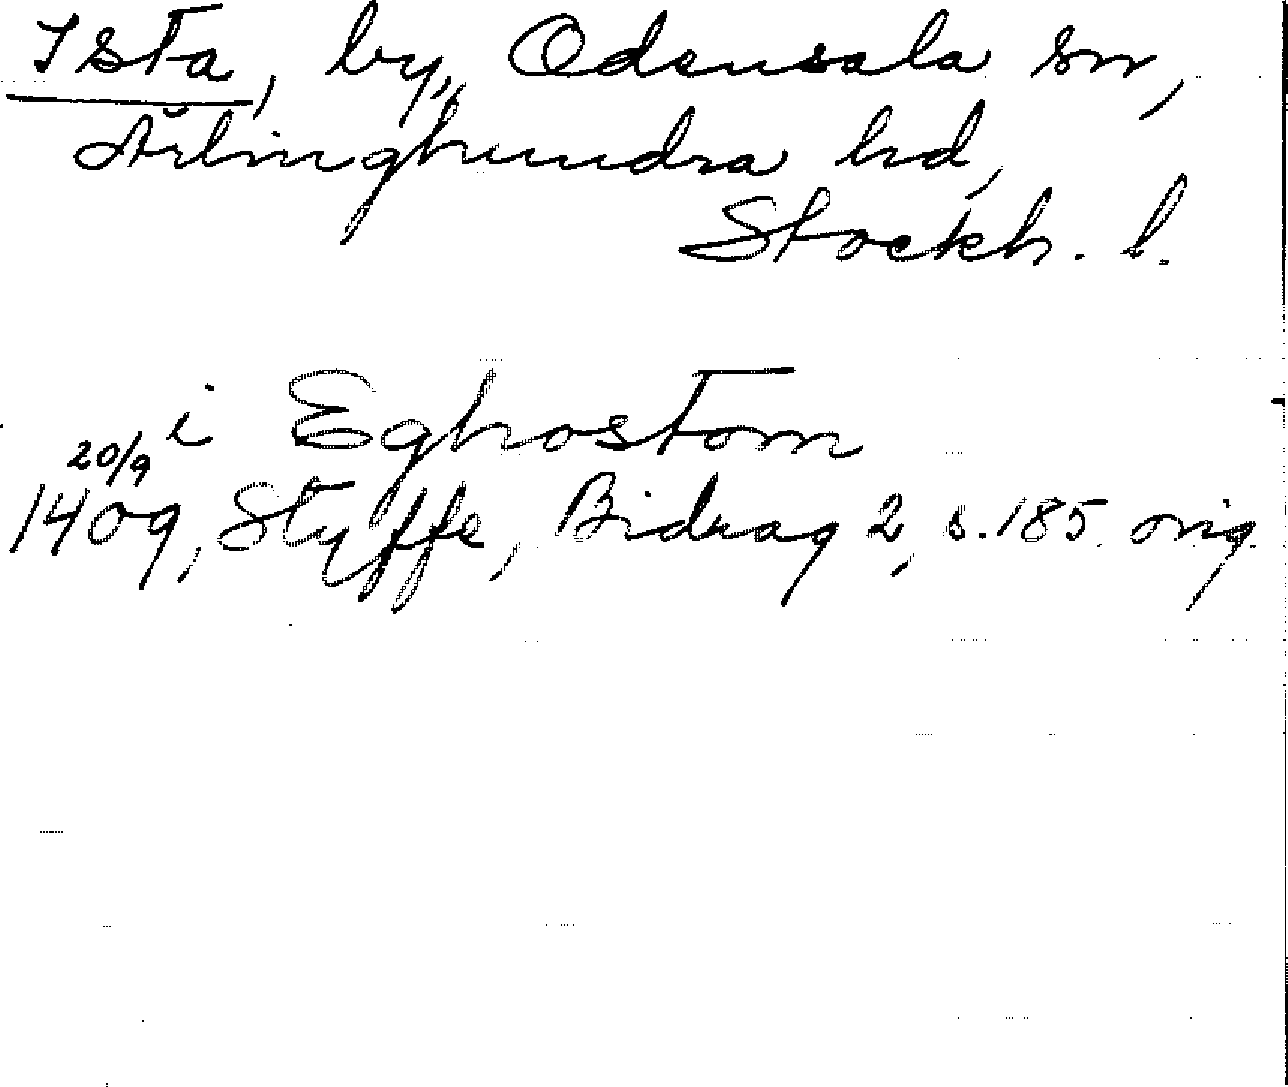 Ista, by, Odensala sn,
Ärlinghundra hd,
Stockh. l.
i Eghostom
20/9
1409, Styffe, Bidrag 2, s. 185 orig.